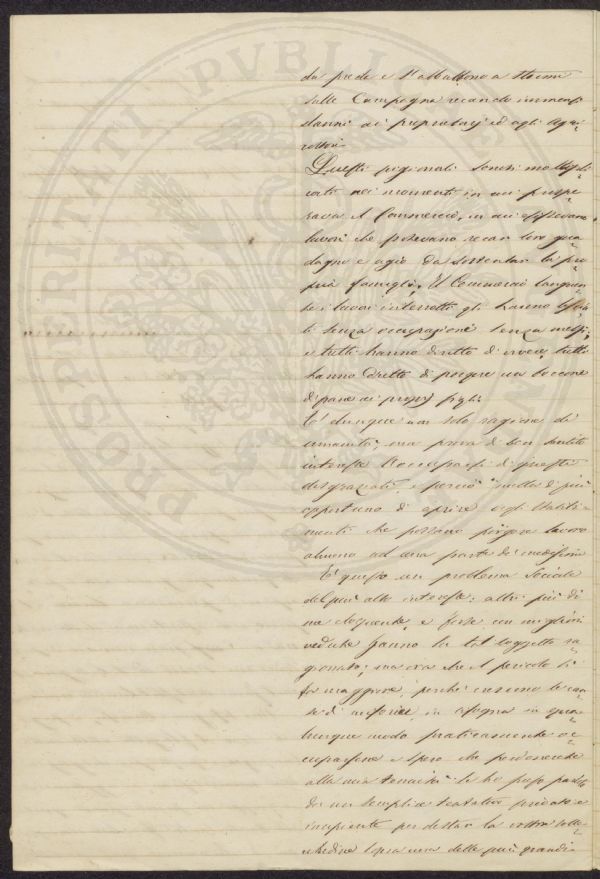 PROSPERITATI PVBLIC
da prede e s'abbattono a stormi
sulle Campagne recando immensi
danni ai proprietarj ed agli Agri-
coltori.
Questi pigionali sonosi moltipli-
cati nei momenti in cui prospe-
rava il Commercio, in cui esistevano
lavori che potevano recar loro gua-
dagno e agio da sostentar le pro-
prie famiglie. Il Commercio languen-
te i lavori interrotti gli hanno lascia-
ti senza occupazione senza mezzi,
e tutti hanno diritto di vivere, tutti
hanno diritto di porgere un boccone
di pane ai proprj figli.
E' dunque non solo ragione di
umanità, ma prova di ben sentito
interesse l'occuparsi di questi
disgraziati, e perciò nulla di più
opportuno di aprire degli Stabili-
menti che possano porgere lavoro
almeno ad una parte di medesimi
E' questo un problema sociale
del più alto interesse: altri più di
me eloquente, e forse con migliori
vedute fanno di tal soggetto ra-
gionato; ma ora che il pericolo si
fa maggiore, perchè crescono le cau-
se di miseria, in bisogna in qua-
lunque modo praticamente oc-
cuparsene e spero che perdonerete
alla mia tenuità se ho preso parte
da un semplice tentativo privato e
incipiente per destar la vostra solle-
citudine sopra una delle più grandi